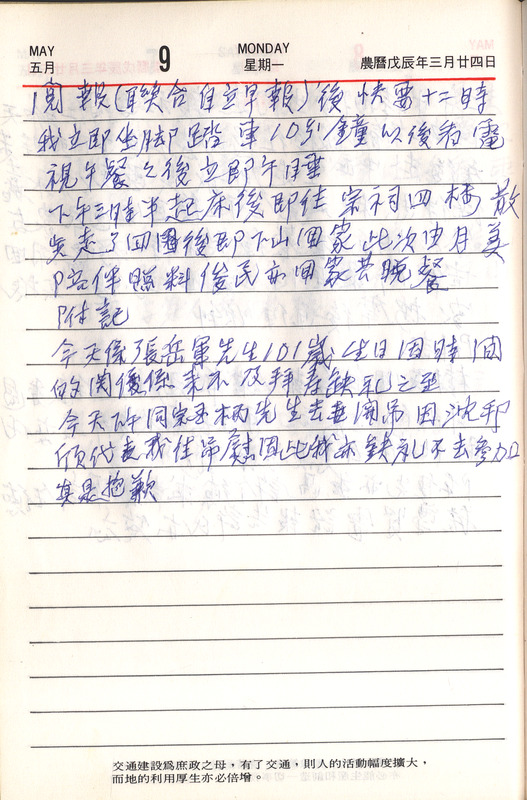 MAY
五月
9
MONDAY
星期一
農曆戊辰年三月廿四日
閱報(聯合自立早報)後快要十二時
我立即坐脚踏車10分鐘以後看電
視午餐之後立即午睡
下午三時半起床後即往宗祠四楼散
走了四圈後即下山回家此次由月美
陪伴照料俊民亦回家共晚餐
附記
今天係張岳軍先生101歲生日因時間
的関係來不及拜寿缺礼之至
今天許同宗丙先生去世開吊因沈邦
頎代表我往吊慰因此我亦缺礼不去参加
真是抱歉
交通建設爲庶政之母,有了交通,則人的活動幅度擴大,
而地的利用厚生亦必倍增。